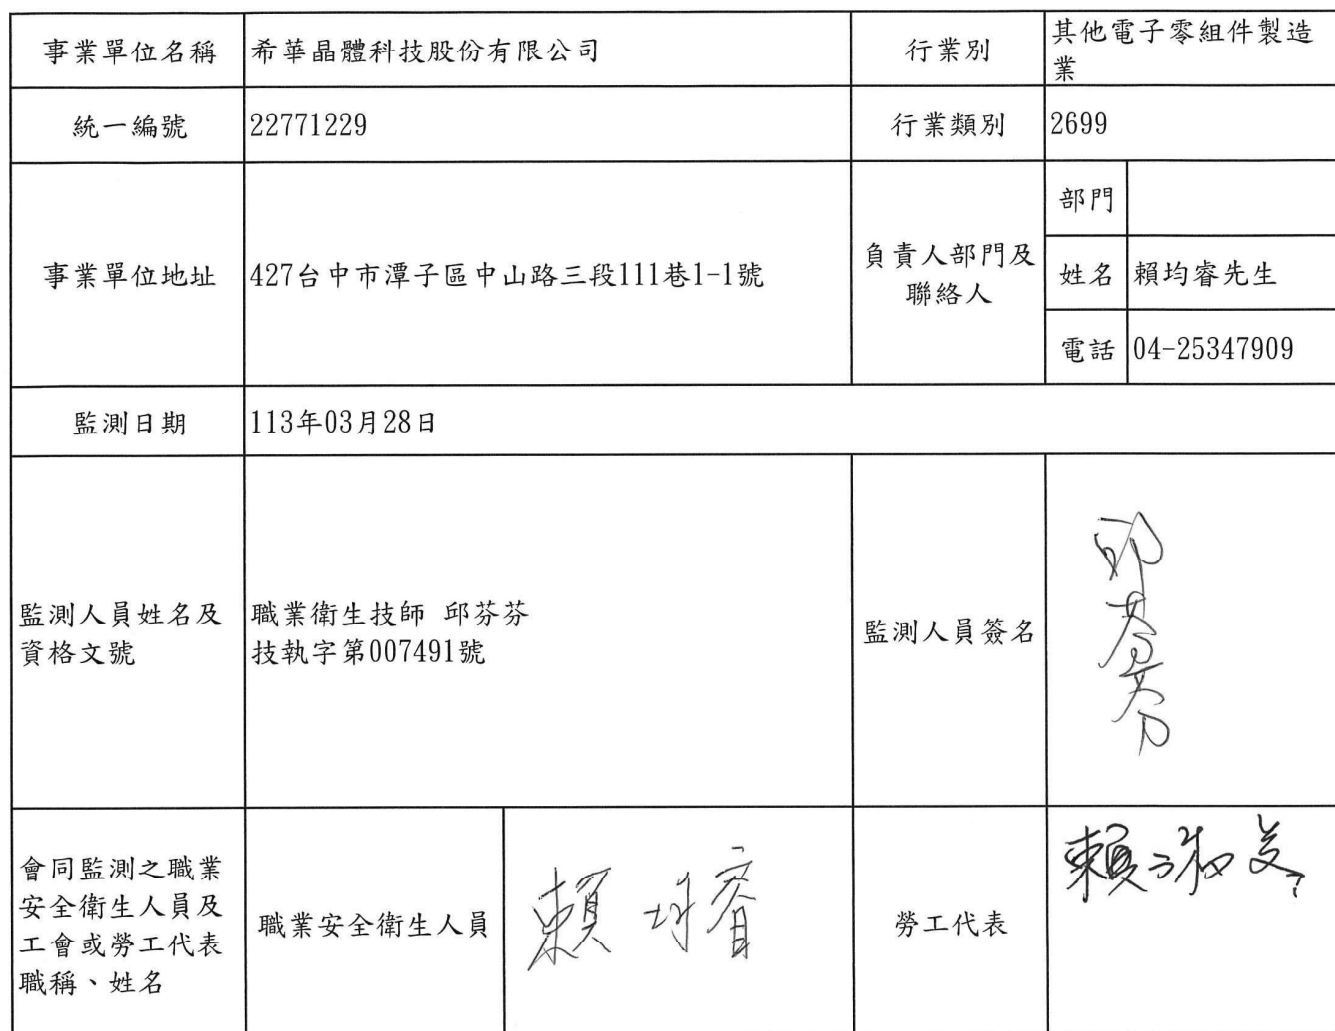 事業單位名稱
希華晶體科技股份有限公司
行業別
其他電子零組件製造
業
統一編號
22771229
行業類別
2699
事業單位地址
427台中市潭子區中山路三段111巷1-1號
負責人部門及
聯絡人
部門
姓名
賴均睿先生
電話
04-25347909
監測日期
113年03月28日
監測人員姓名及
資格文號
職業衛生技師 邱芬芬
技執字第007491號
監測人員簽名
邱芬芬
會同監測之職業
安全衛生人員及
工會或勞工代表
職稱、姓名
職業安全衛生人員
賴均睿
勞工代表
賴